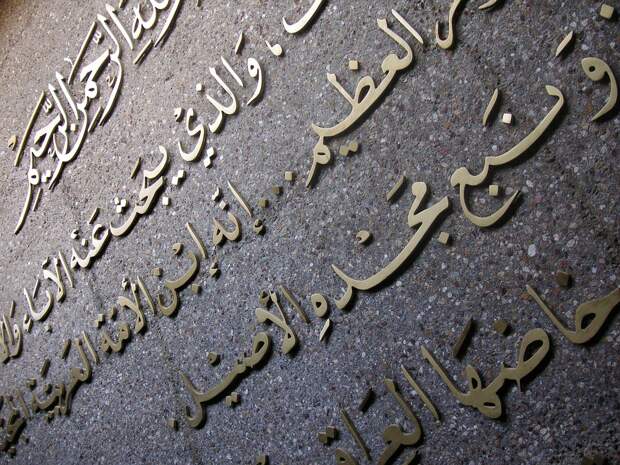 الله الرَّحْمٰنِ الرَّحِيمْ
وَالذيْ يبحَث عَنْه الآبَاء
العَظيم ... إنّه ابْن الأمّة العَربيّة
وَنَبع مجْدهِ الأَصيْل .
حاضنها العِراق